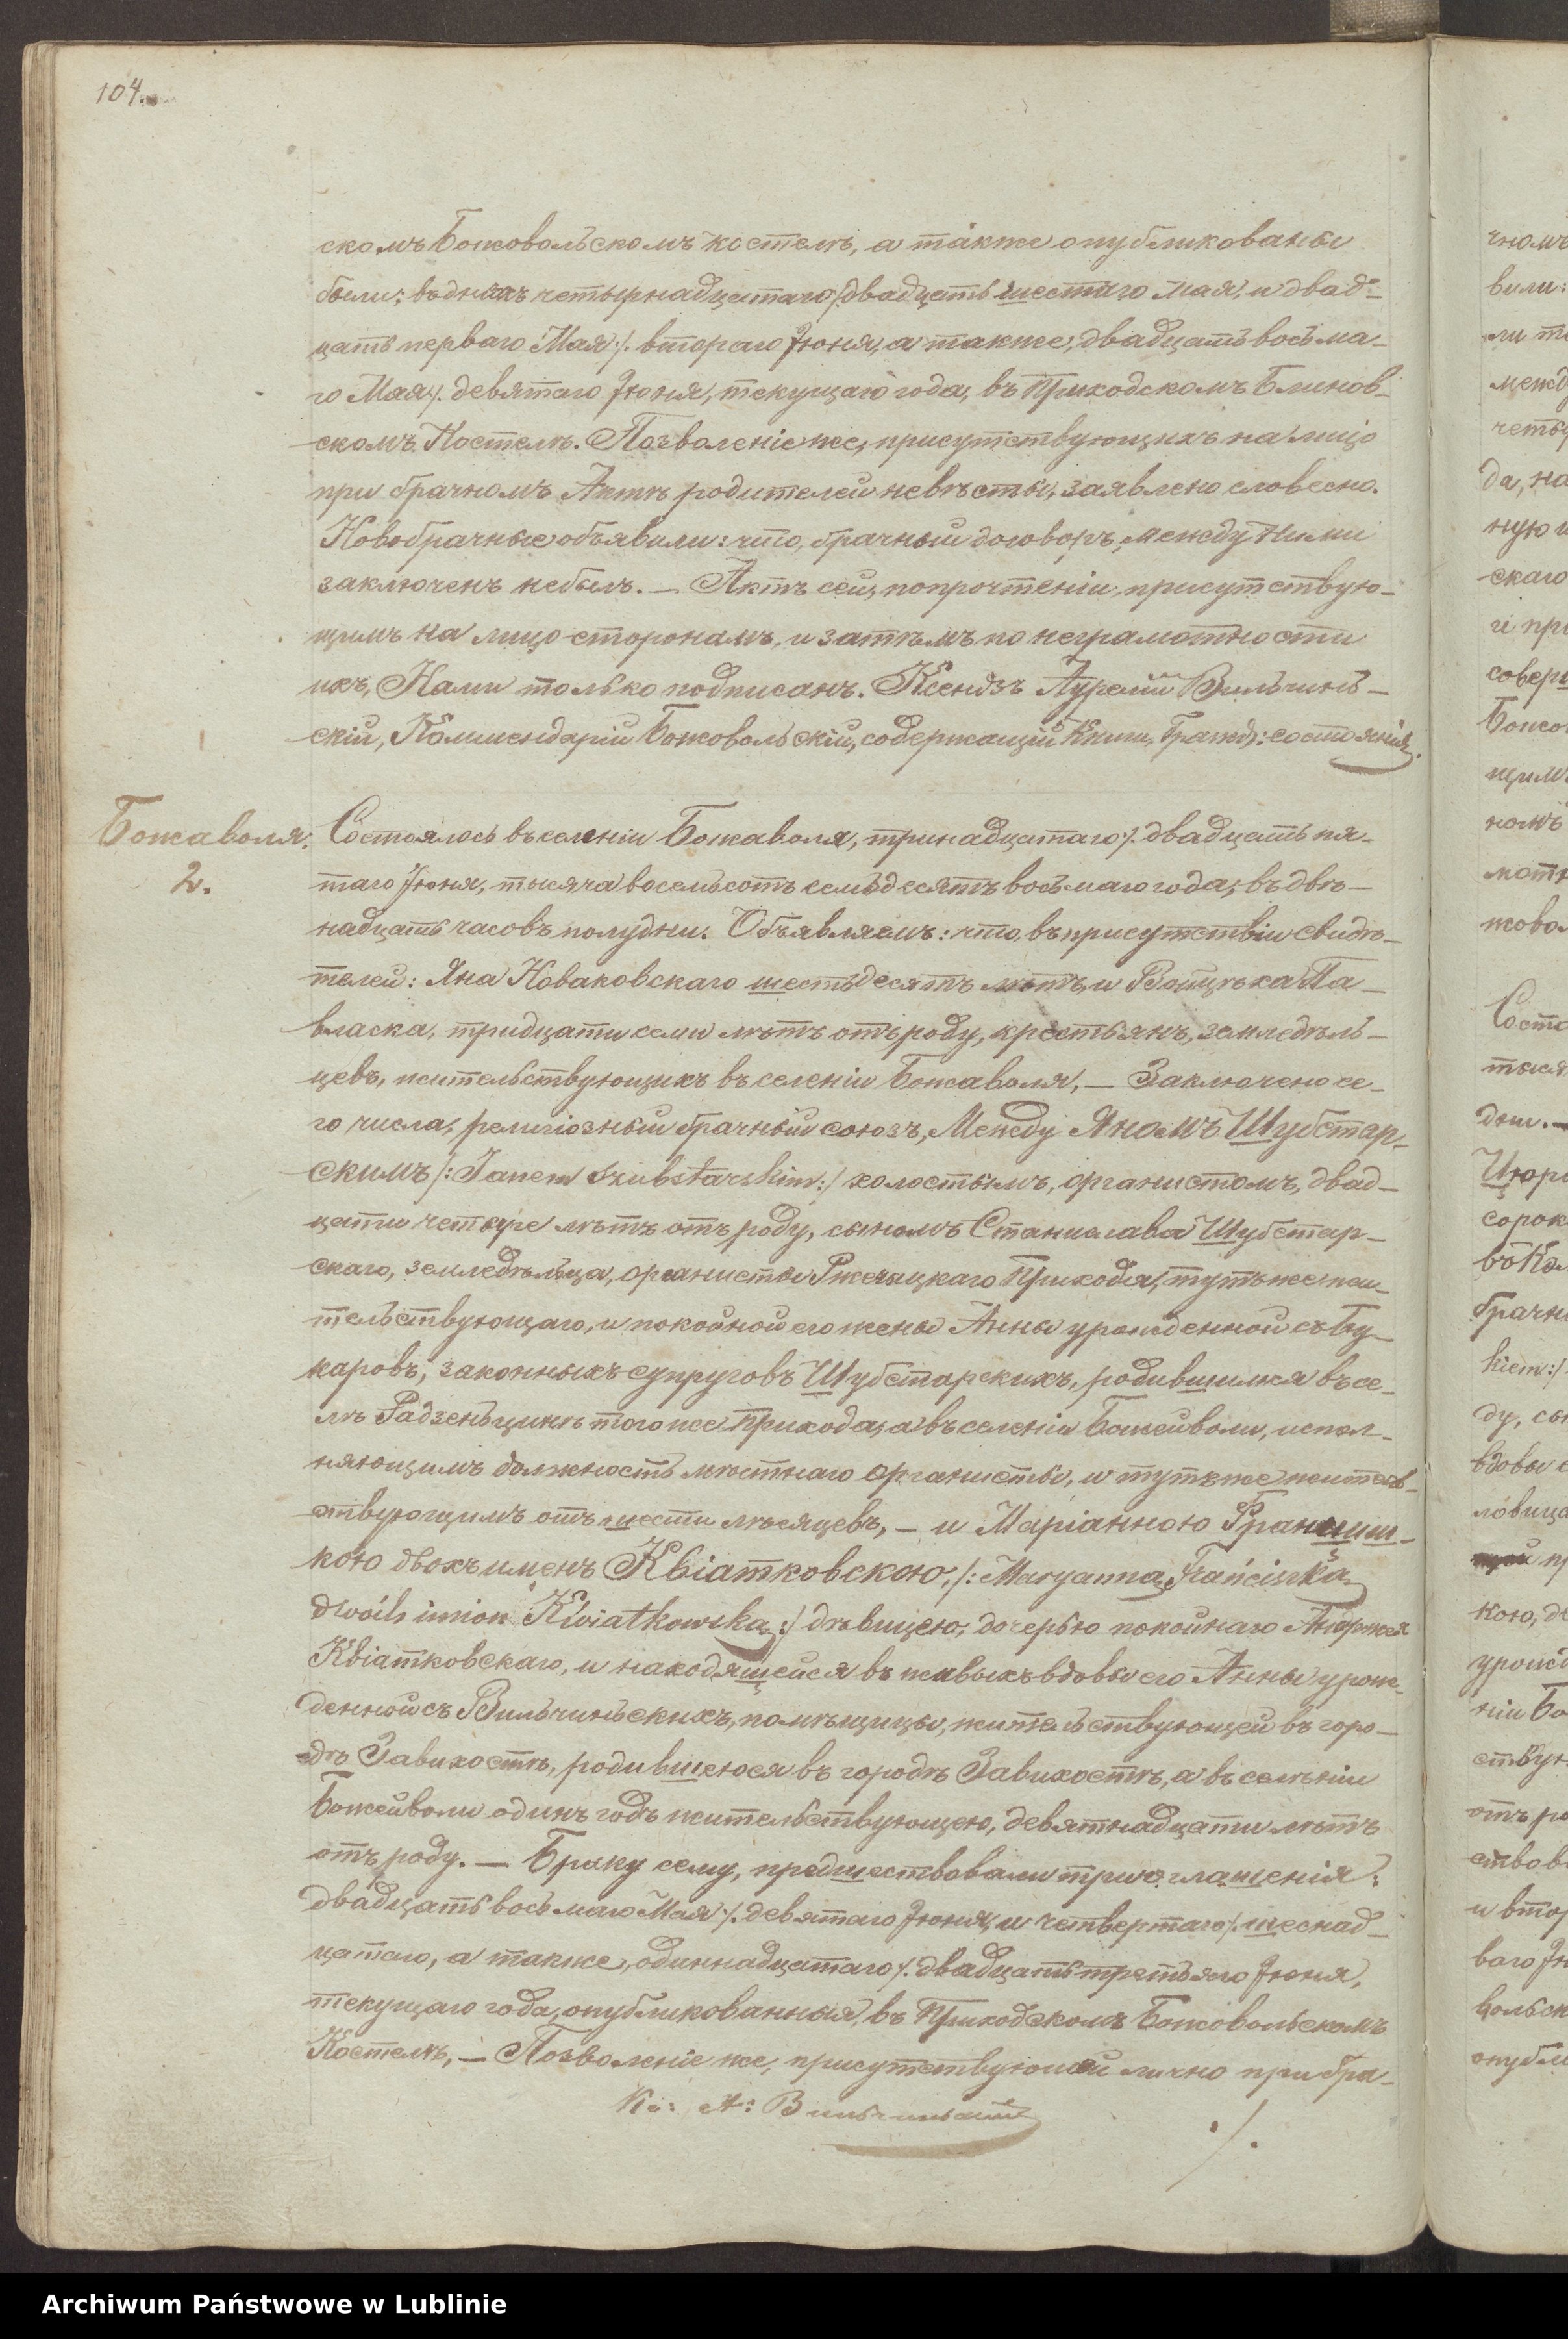 104.
скомъ Божовольскомъ костелѣ, а также опубликованы
были: въ дняхъ четырнадцатаго /. двадцать шестаго Мая, и двад-
цать перваго Мая /. втораго Іюня, а также, двадцать восьма-
го Мая /. девятаго Іюня, текущаго года, въ Приходскомъ Блинов-
скомъ Костелѣ. Позволеніе же, присутствующихъ на лицо
при брачномъ Актѣ родителей невѣсты, заявлено словесно.
Новобрачные объявили: что, брачный договоръ, между ними
заключенъ небылъ. — Актъ сей, попрочтеніи, присутствую-
щимъ на лицо сторонамъ, и затѣмъ по неграмотности
ихъ, Нами только подписанъ. Ксендзъ Аурелій Вильчинь-
скій, Коммендарій Божовольскій, содержащій Книги, Гражд: состоянія.
Божаволя.
2.
Состоялось въ селеніи Божаволя, тринадцатаго /. двадцать пя-
таго Іюня, тысяча восемьсотъ семьдесятъ восьмаго года, въ двѣ-
надцать часовъ полудни. Объявляемъ: что, въ присутствіи свидѣ-
телей: Яна Новаковскаго шестьдесятъ лѣтъ, и Войцѣха Па-
власка, тридцати семи лѣтъ отъ роду, крестьянъ, земледѣль-
цевъ, жительствующихъ въ селеніи Божаволя, — Заключено се-
го числа, религіозный брачный союзъ, Между Яномъ Шубстар-
скимъ /: Janem Szubstarskim :/ холостымъ, органистомъ, двад-
цати четыре лѣтъ отъ роду, сыномъ Станислава Шубстар-
скаго, земледѣльца, органисты Ржечицкаго Прихода, тутъже жи-
тельствующаго, и покойной его жены Анны урожденной съ Бу-
каровъ, законныхъ супруговъ Шубстарскихъ, родившимся въ се-
лѣ Радзеньцинѣ того же Прихода, а въ селеніи Божейволи, испол-
няющимъ должность мѣстнаго органисты, и тутъже житель-
ствующимъ отъ шести мѣсяцевъ, — и Маріанною Францишш-
кою двохъ именъ Квіатковскою, /: Maryanną Franciszką
dwóch imion Kwiatkowską :/ дѣвицею, дочерью покойнаго Андржея
Квіатковскаго, и находящейся въ живыхъ вдовы его Анны урож-
денной съ Вильчиньскихъ, помѣщицы, жительствующей въ горо-
дѣ Завихостѣ, родившеюся въ городѣ Завихостѣ, а въ селѣніи
Божейволи одинъ годъ жительствующею, девятнадцати лѣтъ
отъ роду. — Браку сему, предшествовали три оглашенія:
двадцать восьмаго Мая /. девятаго Іюня, и четвертаго /. шеснад-
цатаго, а также, одиннадцатаго /. двадцать третьяго Іюня,
текущаго года, опубликованныя, въ Приходскомъ Божовольскомъ
Костелѣ, — Позволеніе же, присутствующей лично при бра-
Кс: А: Вильчиньскій
./.